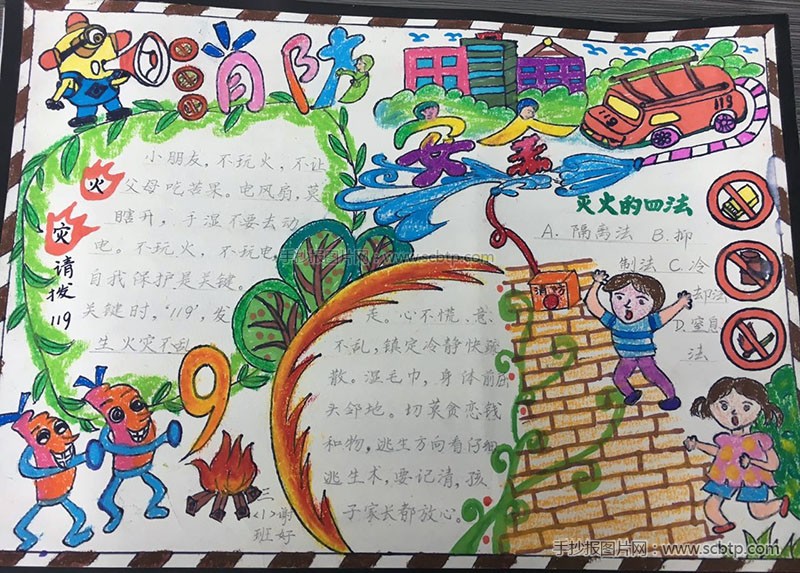 消防
安全
119
119
火灾
请拨119
小朋友，不玩火，不让
父母吃苦果。电风扇，莫
瞎开，手湿不要去动
电。不玩火，不玩电，
自我保护是关键。
关键时，‘119’，发
生火灾不乱
走。心不慌、意
不乱，镇定冷静快疏
散。湿毛巾，身体前
头邻地。切莫贪恋钱
和物，逃生方向看仔细
逃生术，要记清，孩
子家长都放心。
灭火的四法
A. 隔离法 B. 抑
制法 C. 冷
却法
D. 窒息
法
消防
三<1>班
谢好
手抄报图片网：www.scbtp.com
手抄报图片网：www.scbtp.com